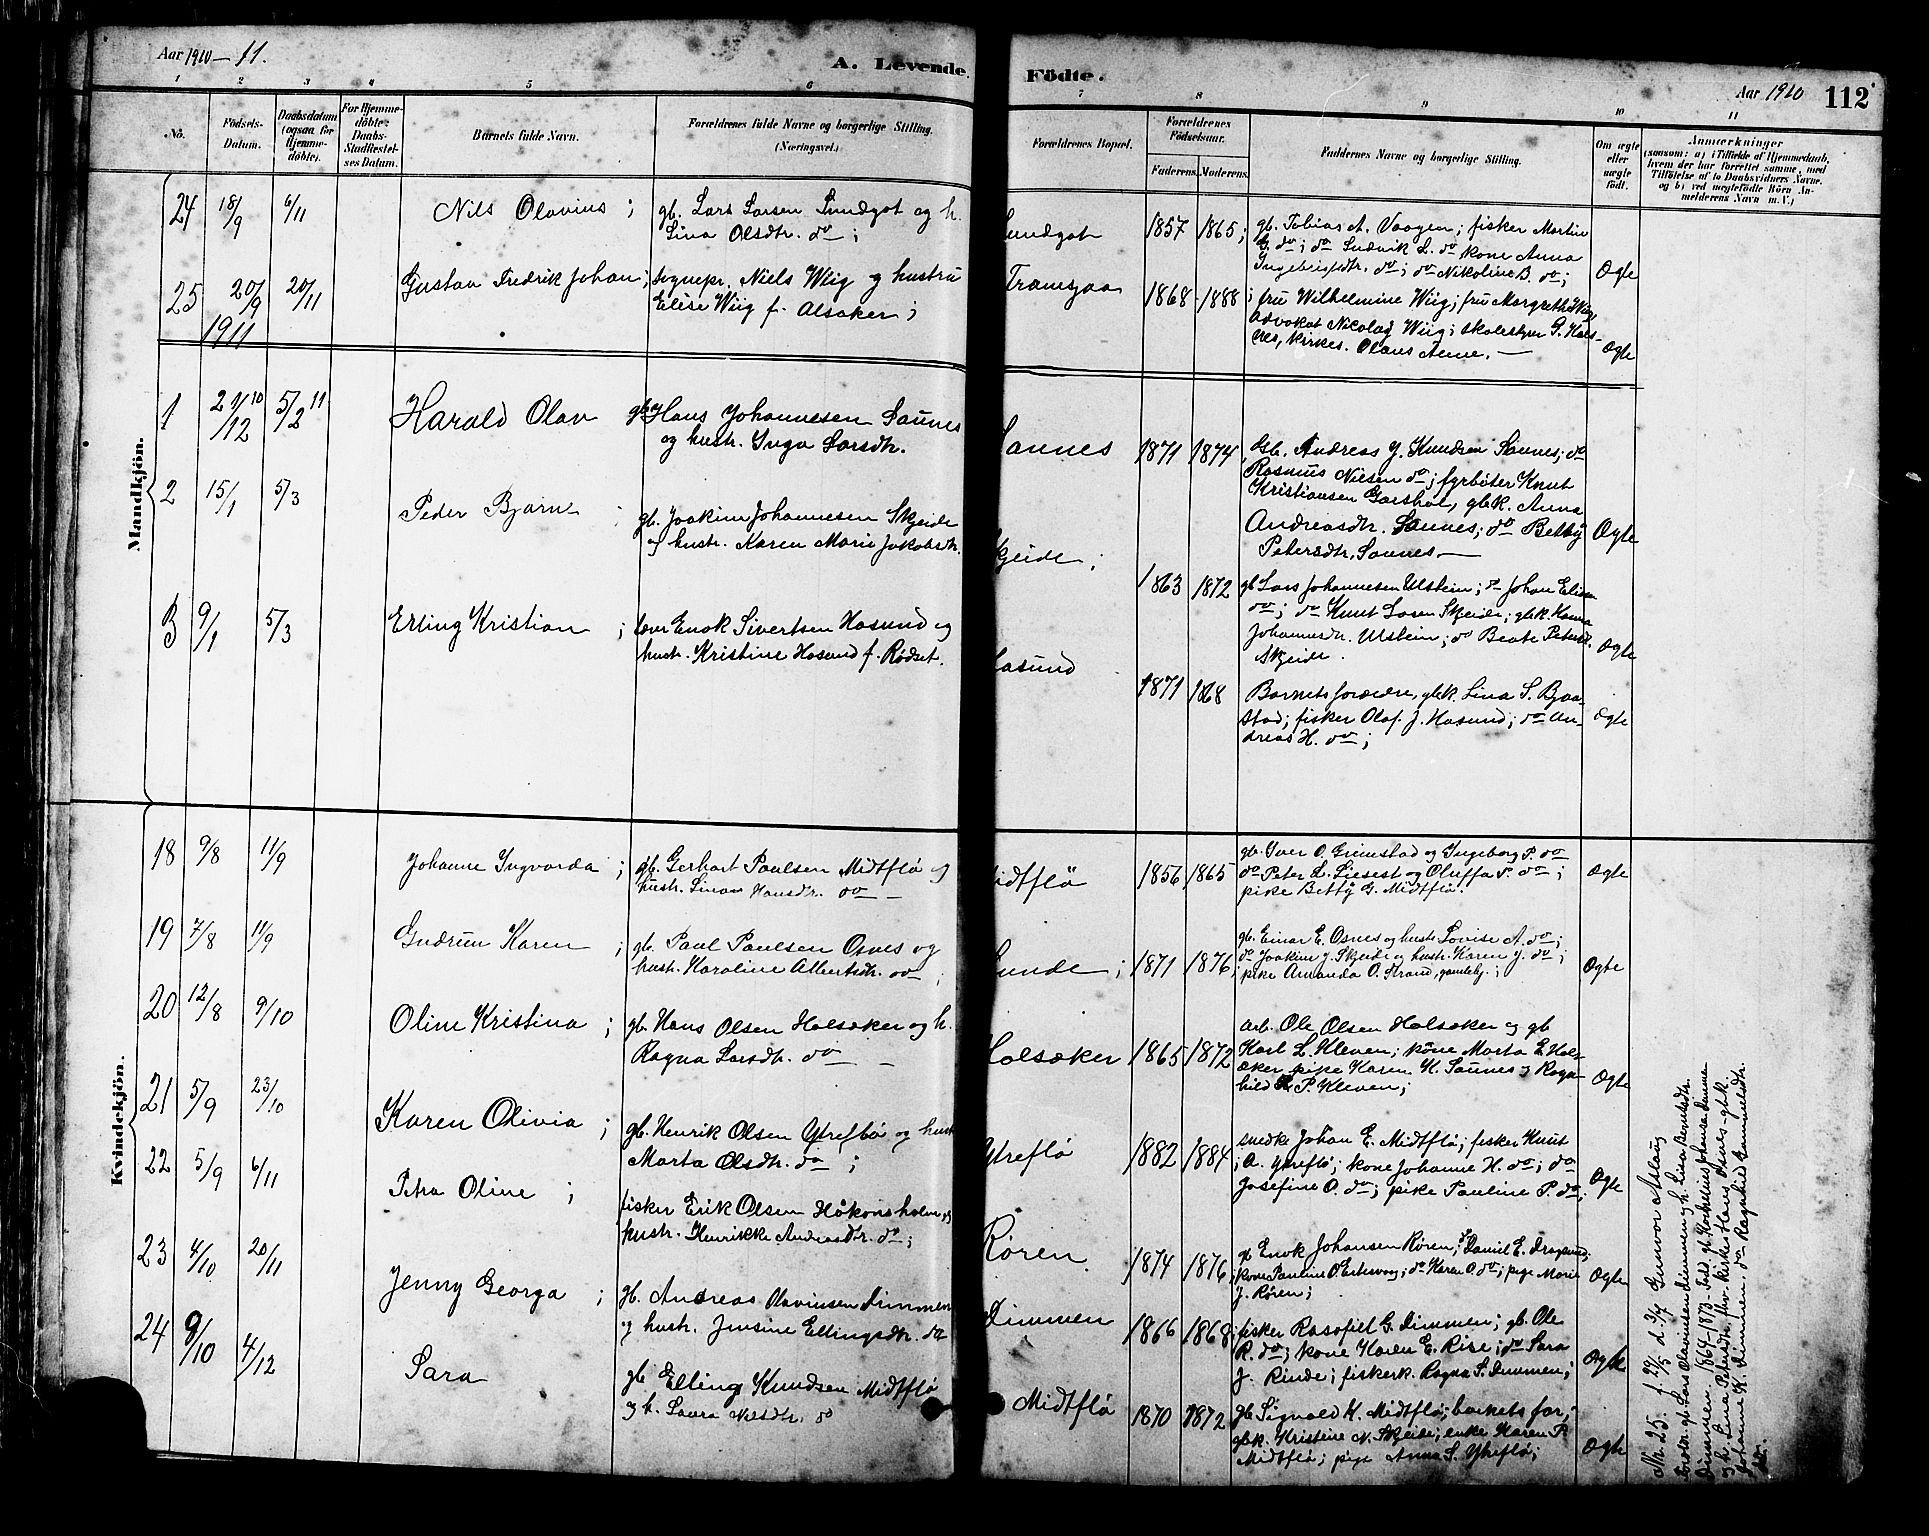 Aar 1910-11.
A. Levende
Födte.
Aar 1910 112
1 2 3 4 5 6 7 8 9 10 11
No.
Födsels-Datum.
Daabsdatum (ogsaa för Hjemmedöbte).
For Hjemmedöbte: Daabs-Stadfæstelses Datum.
Barnets fulde Navn.
Forældrenes fulde Navne og borgerlige Stilling. (Næringsvei.)
Forældrenes Bopæl.
Forældrenes Födselsaar.
Faderens. Moderens.
Faddernes Navne og borgerlige Stilling.
Om ægte eller uægte födt.
Anmærkninger
(saasom: a) i Tilfælde af Hjemmedaab,
hvem der har forrettet samme, med
Tilföielse af to Daabsvidners Navne,
og b) ved uægtefödte Börn An-
melderens Navn m. V.)
Mandkjön.
24 18/9 6/11 Nils Olavius ; gb. Lars Larsen Sundgot og h.
Lina Olsdtr. do ;
Sundgot 1857 1865 ; gb. Tobias A. Vaagen; fisker Martin
G. do; do Ludvik L. do kone Anna
Ingebrigtsdtr. do; do Nikoline B. do; Ægte
25 20/9 20/11 Gustav Fredrik Johan ; sognepr. Niels Wiig og hustru
Elise Wiig f. Alsaker ;
1868 1888 ; fru Wilhelmine Wiig; fru Margrethe Wiig,
advokat Nicolay Wiig; skolestyrer G. Hals-
nes, kirkes. Olaus Aeme. — Ægte
1911
1 21/12 10 5/2 11 Harald Olav gb. Hans Johannesen Saunes
og hustr. Inga Larsdtr.
Saunes 1871 1874 gb. Andreas J. Knudsen Saunes; do
Rasmus Nielsen do; fyrböter Knut
Kristiansen Garshol, gbk. Anna
Andreasdtr. Saunes; do Betty
Petersdtr. Saunes — Ægte
2 15/1 5/3 Peder Bjarne ; gb. Joakim Johannesen Skjeide
og hustr. Karen Marie Jakobsdtr.
Skjeide ; 1863 1872 gb Lars Johannesen Ulstein; do Johan Elias
do; do Knut Larsen Skjeide; gbk. Hanna
Johannesdtr. Ulstein; do Beate Petersdt.
Skjeide. Ægte
3 9/1 5/3 Erling Kristian ; lærer Enok Sivertsen Hasund og
hustr. Kristine Hasund f. Rødset.
Hasund 1871 1868 Barnets forældre, gbk. Lina S. Bjaa-
stad; fisker Olaf. J. Hasund; do An-
dreas H. do; Ægte
Kvindekjön.
18 9/8 11/9 Johanne Ingvarda ; gb. Gerhart Paulsen Midtflø og
hustr. Lina Hansdtr. do —
Midtflø 1856 1865 gb. Iver O. Grimstad og Ingeborg P. do
do Peter L. Liesest og Oluffa P. do ;
pike Betty G. Midtflø. Ægte
19 7/8 11/9 Gudrun Karen ; gb. Paul Paulsen Osnes og
hustr. Karoline Albertsdtr. do ;
Sunde ; 1871 1876 gb. Einar E. Osnes og hustr Lovise A. do;
do Joakim J. Skjeide og hustr. Karen J. do;
pike Amanda O. Strand, gamlehj. ; Ægte
20 12/8 9/10 Oline Kristina ; gb. Hans Olsen Holsæker og h.
Ragna Larsdtr. do —
Holsæker 1865 1872 arb. Ole Olsen Holsæker og gb
Karl L. Kleven; kone Marta E. Hols-
æker pike Karen K. Saunes og Ragn-
hild P. Kleven; Ægte
21 5/9 23/10 Karen Olivia ; gb. Henrik Olsen Ytreflø og hustr
Marta Olsdtr. do ;
Ytreflø 1882 1884 snedke Johan E. Midtflø; fisker Knut
A. Ytreflø; kone Johanne H. do; do
Josefine O. do; pike Pauline P. do; Ægte
22 5/9 6/11 Petra Oline ; fisker Erik Olsen Håkonsholm og
hustr. Henrikke Andreasdtr. do;
Røren 1874 1876 gb Enok Johansen Røren; do Daniel E. Dragsund;
kone Pauline O. Eiksvaag; do Karen O. do; pige Marie
J. Røren; Ægte
23 4/10 20/11 Jenny Georga ; gb. Andreas Olavinsen Dimmen
og hustr. Jensine Ellingsdtr. do
Dimmen 1866 1868 fisker Rasofiel G. Dimmen; gb. Ole
R. do; kone Karen E. Rise; do Sara
J. Rinde; fiskerk. Ragna S. Dimmen; Ægte
24 9/10 4/12 Sara gb. Elling Knudsen Midtflø
og h. Laura Nilsdtr. do
Midtflø 1870 1872 gb Sigvald K. Midtflø; barnets far,
gbk. Kristine N. Skjeide; enke Karen P.
Midtflø; pige Anna S. Ytreflø; Ægte
No. 25. f. 29/5 d 3/9 Gunvor Aslaug
foreldr. gb. Lars Olavinsen Dimmen og h. Lina Berntsdtr.
Dimmen. 1864-1873.
og h. Lina Petersdtr. fhv. kirkes. Hans Osnes - gbk.
Johanne K. Dimmen. do Ragnhild Gammelsdtr.
do.